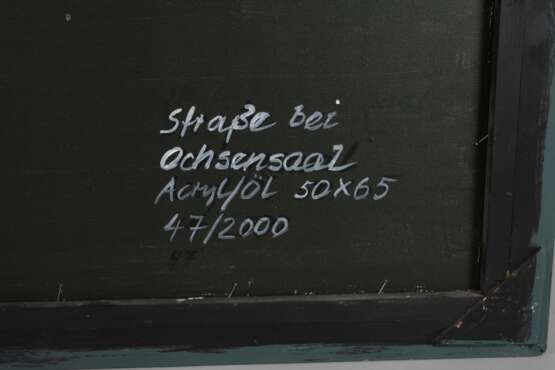 Straße bei
Ochsensaal
Acryl/Öl 50x65
47/2000
47